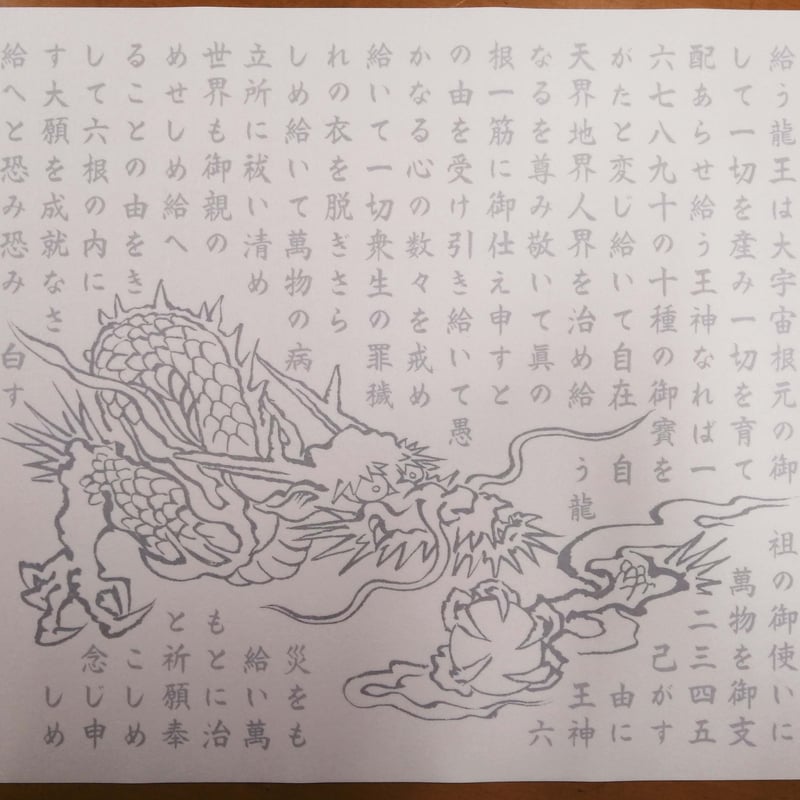 給う龍王は大宇宙根元の御祖の御使いに
して一切を産み一切を育て萬物を御支
配あらせ給う王神なれば一二三四五
六七八九十の十種の御寶を己がす
がたと変じ給いて自在自由に
天界地界人界を治め給う龍王神
なるを尊み敬いて眞の六
根一筋に御仕え申すと
の由を受け引き給いて愚
かなる心の数々を戒め
給いて一切衆生の罪穢
れの衣を脱ぎさら
しめ給いて萬物の病災をも
立所に祓い清め給い萬
世界も御親のもとに治
めせしめ給へと祈願奉
ることの由をきこしめ
して六根の内に念じ申
す大願を成就なさしめ
給へと恐み恐み白す